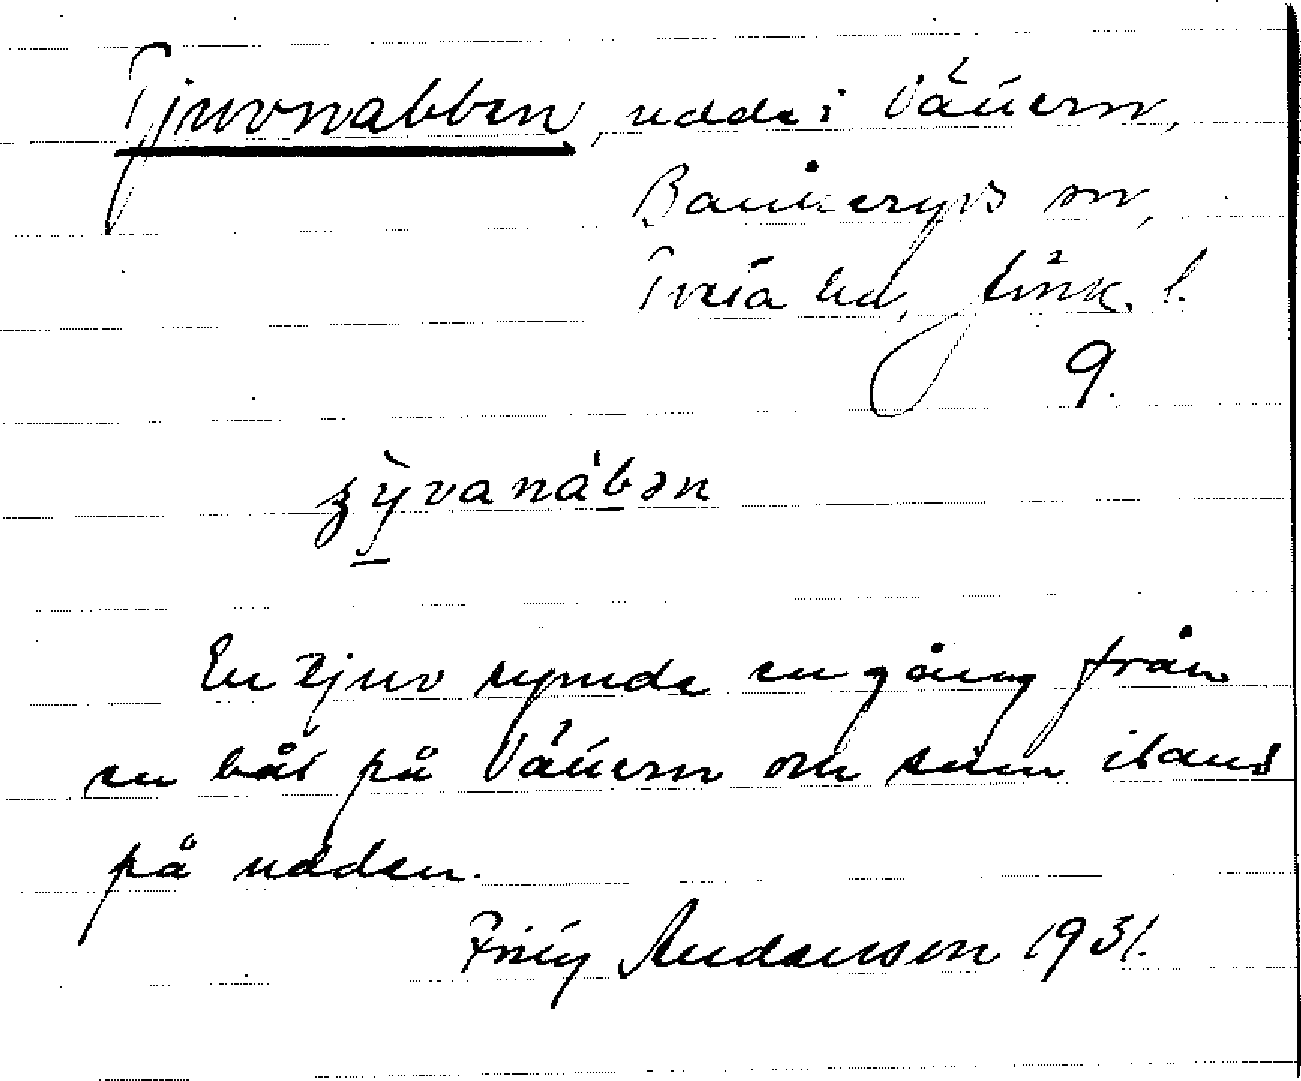 Tjuvnabben, udde i Vättern,
Bankeryds sn,
Tveta hd, Jönk. l.
9.
En tjuv rymde en gång från
en båt på Vättern om sam iland
på udden.
Fritz Andersson 1931.